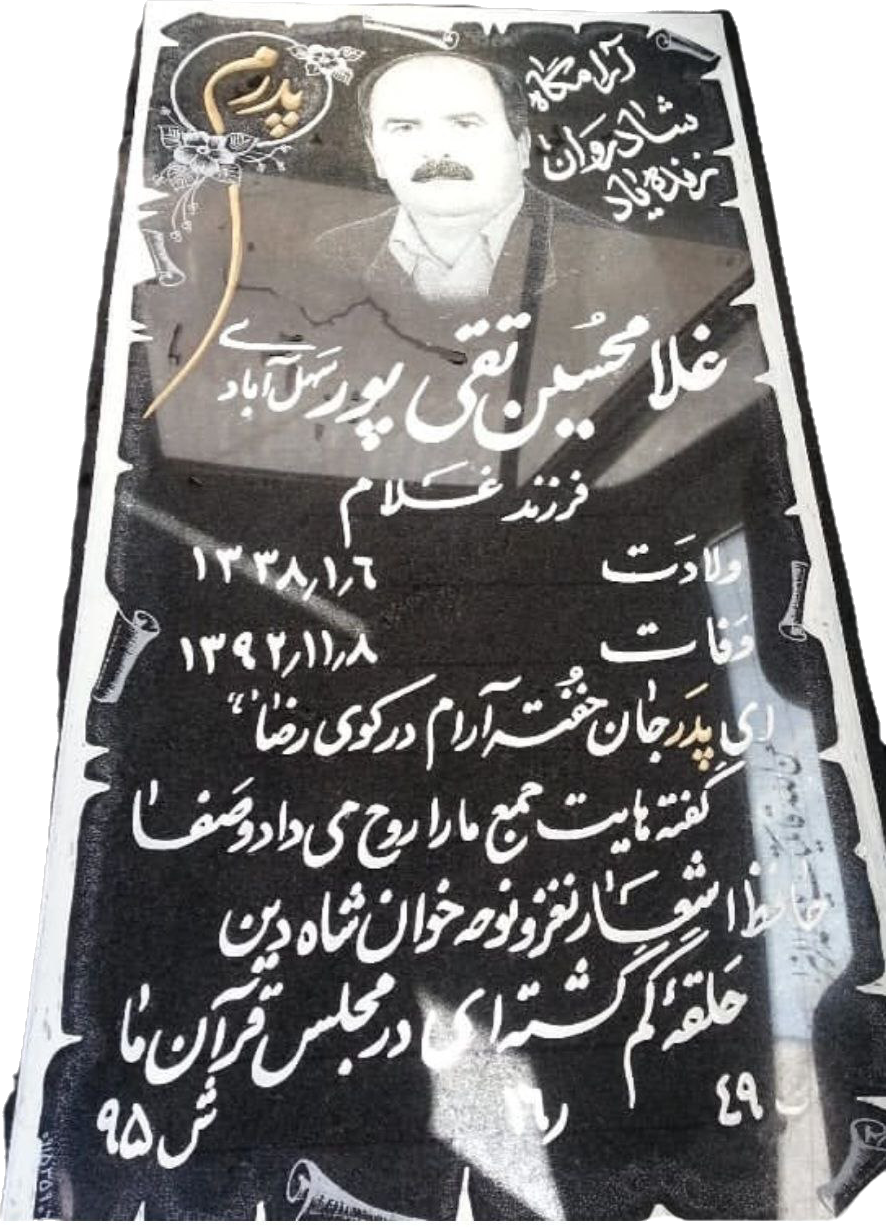 پدرم
آرامگاه
شادروان
زنده یاد
غلامحسین تقی پور سهل آبادی
فرزند غلام
ولادت ۱۳۳۸٫۱٫۶
وفات ۱۳۹۲٫۱۱٫۸
ای پدر جان خفته آرام در کوی رضا
گفته هایت جمع ما را روح می داد و صفا
حافظ اشعار نغز و نوحه خوان شاه دین
حلقهٔ گم گشته ای در مجلس قرآن ما
ب ۴۹ ر ۲۶ ش ۹۵